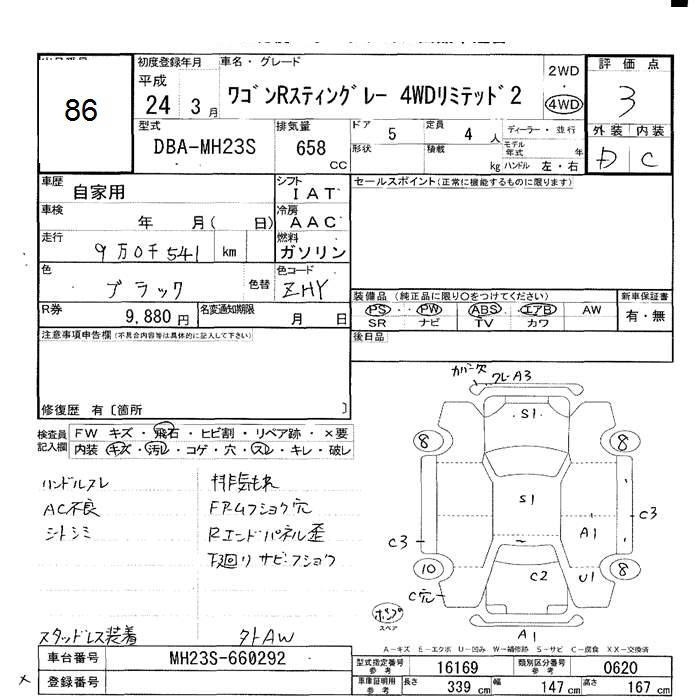 86
初度登録年月
平成
24 3月
車名・グレード
ワゴンRスティングレー 4WDリミテッド2
2WD
4WD
評価点
3
外装 内装
D C
型式
DBA-MH23S
排気量
658 CC
ドア 5
定員 4 人
形状
積載 kg
ディーラー・並行
モデル年式 年
ハンドル 左・右
車歴
自家用
シフト
I A T
車検
年 月( 日)
冷房
A A C
走行
9万0千541 km
燃料
ガソリン
色
ブラック
色替
色コード
ZHY
R券
9,880 円
名変通知期限
月 日
セールスポイント(正常に機能するものに限ります)
装備品 (純正品に限り○をつけてください)
PS ・ PW ABS エアB AW
SR ナビ TV カワ
新車保証書
有・無
後日品
注意事項申告欄(不具合内容等は具体的に記入して下さい)
修復歴 有〔箇所 〕
検査員記入欄
FW キズ・飛石・ヒビ割・リペア跡・×要
内装 キズ・汚レ・コゲ・穴・スレ・キレ・破レ
ハンドルスレ
AC不良
シートシミ
排気もれ
FRムフショウ穴
Rエンドパネル歪
下廻りサビ・フショウ
スタッドレス装着
外AW
カバー欠
クレ・A3
S1
8
8
S1
C3
C3
A1
10
8
C2
U1
C穴
A1
ポンプ
スペア
A－キズ E－エクボ U－凹み W－補修跡 S－サビ C－腐食 XX－交換済
車台番号
MH23S-660292
登録番号
型式指定番号 参考
16169
類別区分番号 参考
0620
車庫証明用 参考
長さ 339 cm
幅 147 cm
高さ 167 cm